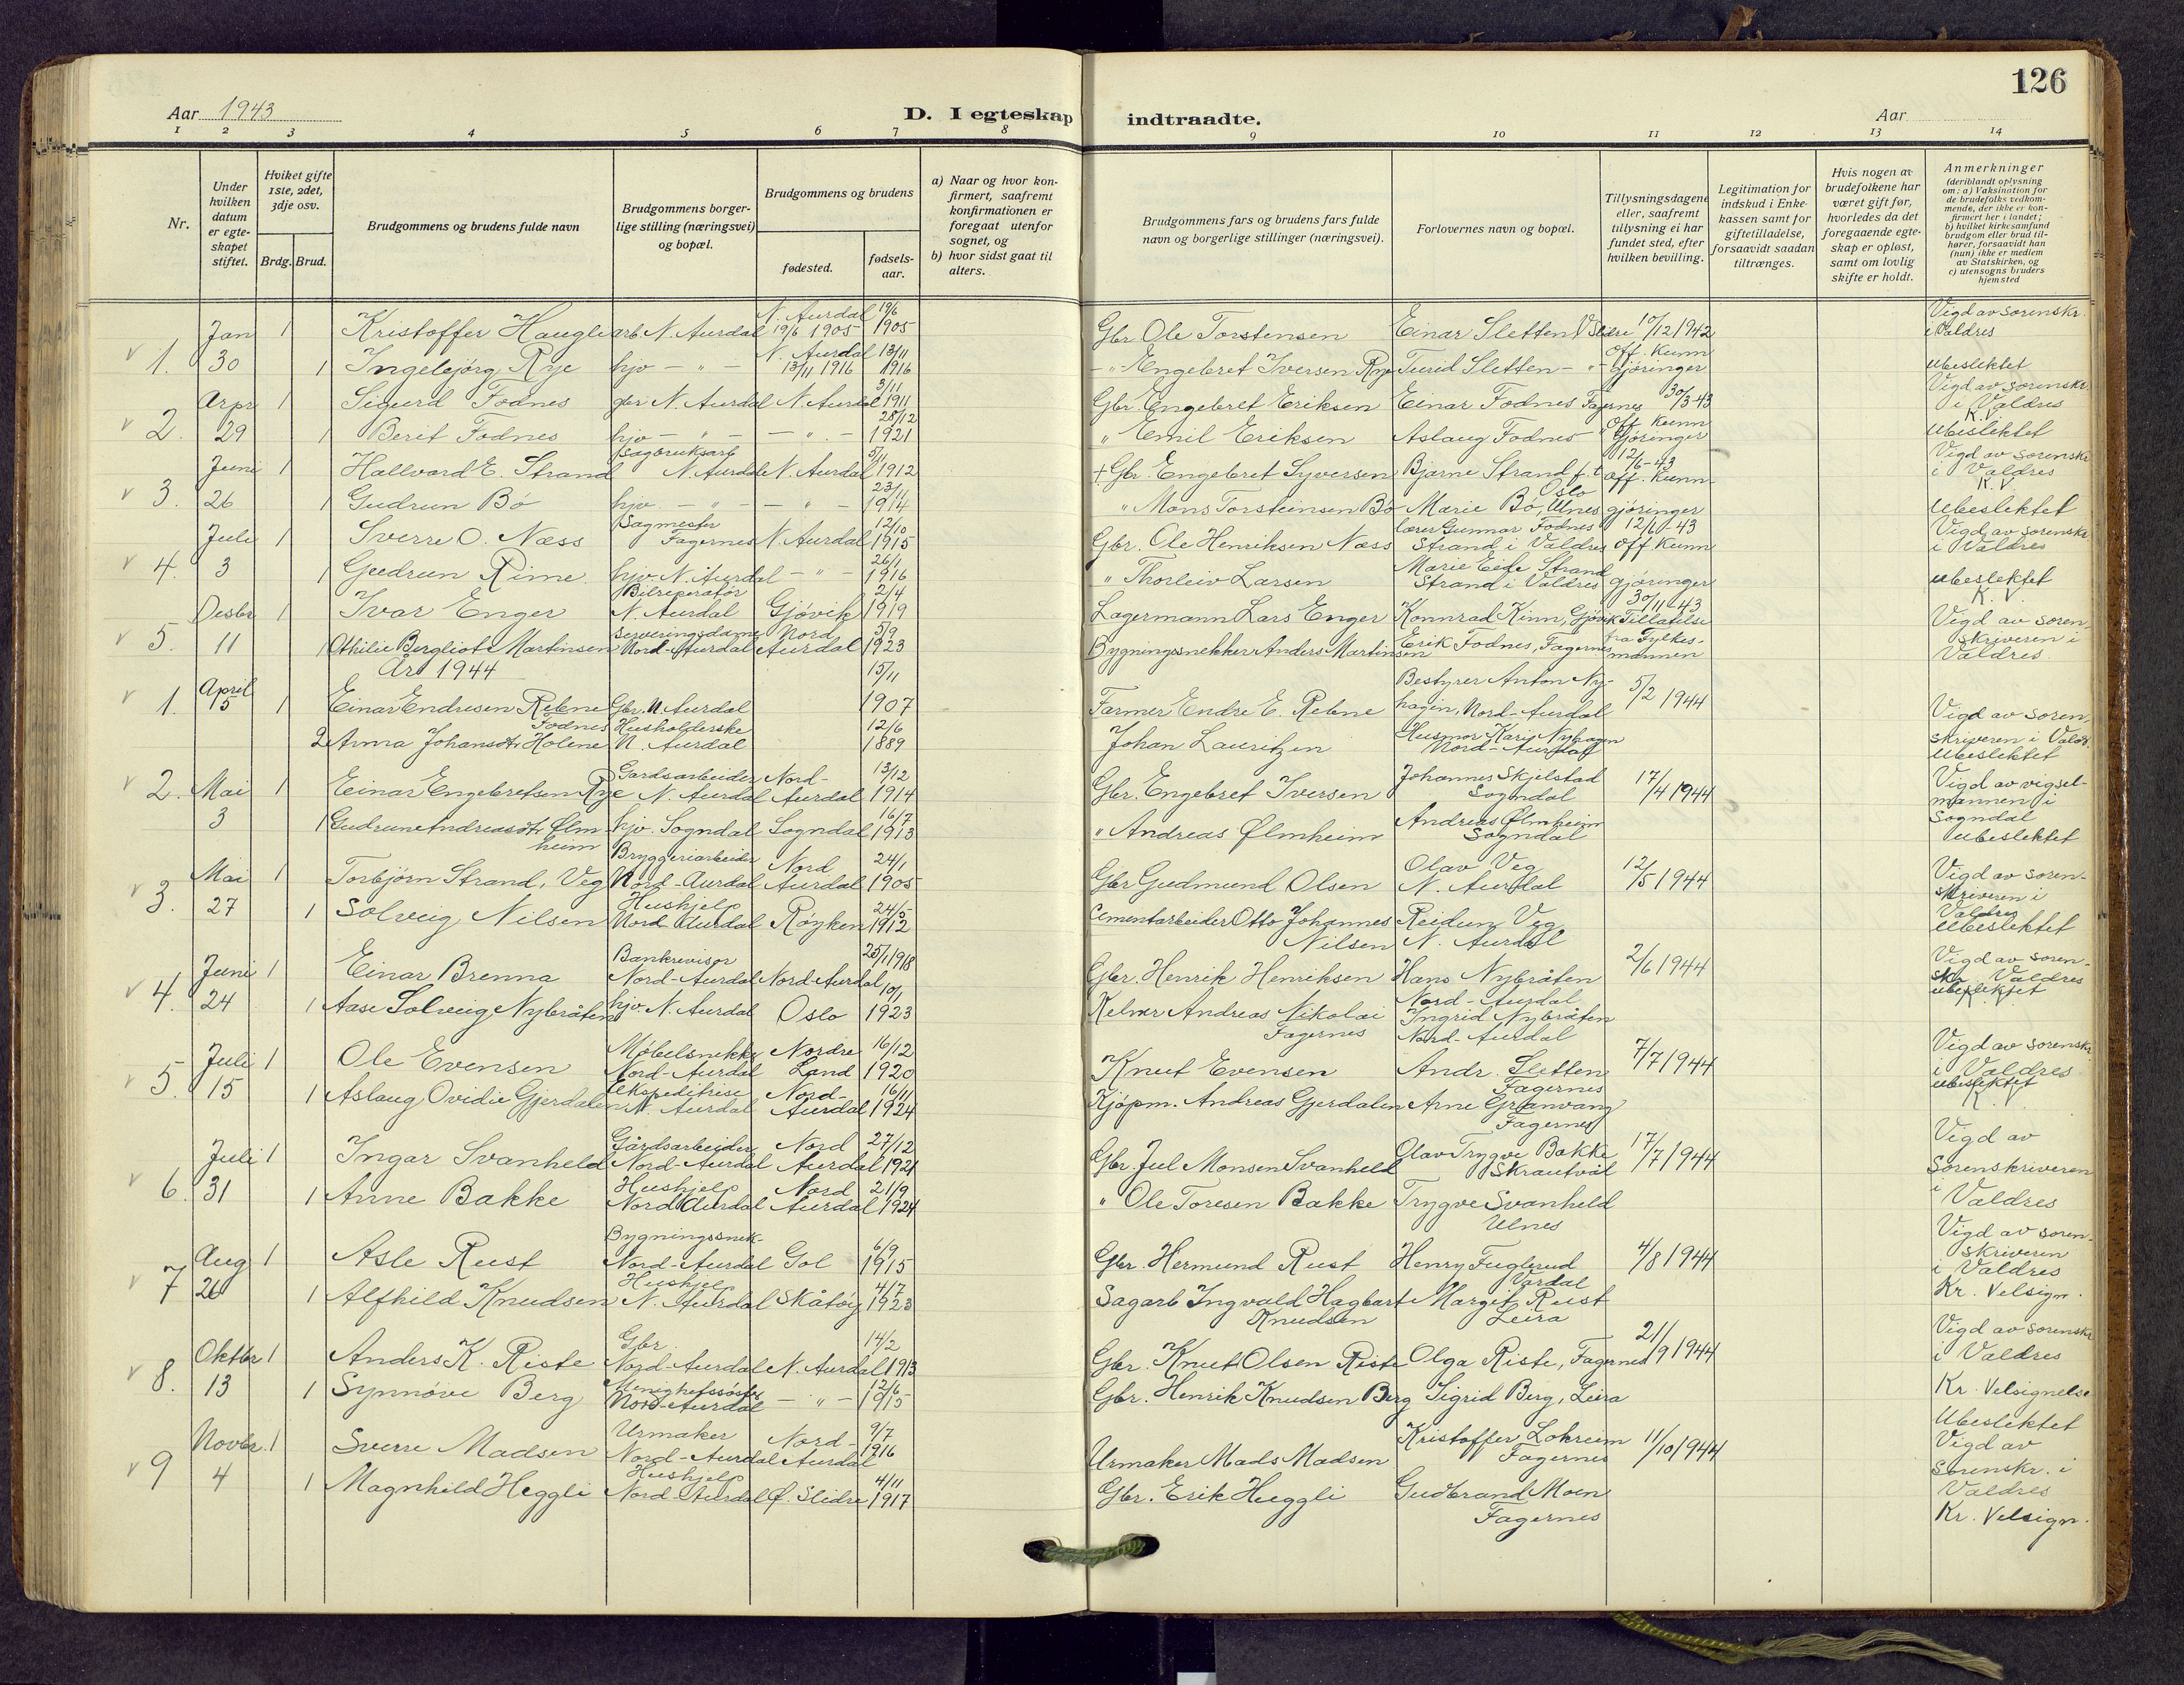 126
Aar 1943
D. I egteskap indtraadte.
Aar
1 2 3 4 5 6 7 8 9 10 11 12 13 14
Nr.
Under hvilken datum er egte- skapet stiftet.
Hvilket gifte 1ste, 2det, 3dje osv.
Brdg. Brud.
Brudgommens og brudens fulde navn
Brudgommens borger- lige stilling (næringsvei) og bopæl.
Brudgommens og brudens
fødested.
fødsels- aar.
a) Naar og hvor kon- firmert, saafremt konfirmationen er foregaat utenfor sognet, og
b) hvor sidst gaat til alters.
Brudgommens fars og brudens fars fulde navn og borgerlige stillinger (næringsvei).
Forlovernes navn og bopæl.
Tillysningsdagene eller, saafremt tillysning ei har fundet sted, efter hvilken bevilling.
Legitimation for indskud i Enke- kassen samt for giftetilladelse, forsaavidt saadan tiltrænges.
Hvis nogen av brudefolkene har været gift før, hvorledes da det foregaaende egte- skap er opløst, samt om lovlig skifte er holdt.
Anmerkninger (deriblandt oplysning om: a) Vaksination for de brudefolks vedkom- mende, der ikke er kon- firmert her i landet; b) hvilket kirkesamfund brudgom eller brud til- hører, forsaavidt han (hun) ikke er medlem av Statskirken, og c) utensogns bruders hjemsted
1. Jan 30 1 Kristoffer Haugli arb. N. Aurdal N. Aurdal 19/6 1905 19/6 1905 Gbr Ole Torstensen Einar Sletten V Slidre 10/12 1942 Vigd av sorenskr. i Valdres
1 Ingebjørg Rye hjv - " - N. Aurdal 13/11 1916 13/11 1916 - " - Engebret Iversen Rye Turid Sletten - " - Off. Kunn gjøringer Ubeslektet
2. Arpr 29 1 Sigurd Fodnes gbr N. Aurdal N. Aurdal 3/11 1911 Gbr Engebret Eriksen Einar Fodnes Fagernes 30/3-43 Vigd av sorenskr. i Valdres K.V.
1 Berit Fodnes hjv - " - - " - 28/12 1921 " Emil Eriksen Aslaug Fodnes " Off Kunn gjøringer Ubeslektet
3. Juni 26 1 Hallvard E. Strand Sagbruksarb N. Aurdal N. Aurdal 5/11 1912 + Gbr. Engebret Syversen Bjarne Strand f.t. Oslo 12/6-43 off. Kunn Vigd av sorenskr i Valdres K.V.
1 Gudrun Bø hjv. - " - - " - 23/1 1914 " Mons Torsteinsen Bø Marie Bø, Ulnes gjøringer Ubeslektet
4. Juli 3 1 Sverre O. Næss Sagmester Fagernes N. Aurdal 12/10 1915 Gbr. Ole Henriksen Næss lærer Gunnar Fodnes Strand i Valdres 12/6-43 Off Kunn Vigd av sorenskr. i Valdres
1 Gudrun Rime hjv. N. Aurdal - " - 26/1 1916 " Thorleiv Larsen Marie Strand Strand i Valdres gjøringer Ubeslektet K.V.
5. Desbr 11 1 Ivar Enger Bilreperatør N. Aurdal Gjøvik 2/4 1919 Lagermann Lars Enger Konnrad Kinn, Gjøvik 30/11-43 Tillatelse Vigd av soren
1 Othilie Bergliot Martinsen Serveringsdame Nord-Aurdal Nord Aurdal 5/9 1923 Bygningssnekker Anders Martinsen Erik Fodnes, Fagernes fra Fylkes- mannen skriveren i Valdres
År 1944
1. April 15 1 Einar Endresen Rebne Gbr. N. Aurdal 15/11 1907 Farmer Endre E. Rebne Bestyrer Anton Ny- hagen, Nord-Aurdal 5/2 1944 Vigd av soren
2 Anna Johansdtr Holene Fodnes Husholderske N. Aurdal 12/6 1889 Johan Lauritzen Husmor Kari Nyhagen Nord-Aurdal skriveren i Vald. Ubeslektet
2. Mai 3 1 Einar Engebretsen Rye Gardsarbeider N. Aurdal Nord- Aurdal 13/12 1914 Gbr. Engebret Iversen Johannes Skjelstad Sogndal 17/4 1944 Vigd av vigsel- mannen i Sogndal
1 Gudrun Andreasdtr Ølm- heim hjv. Sogndal Sogndal 16/7 1913 " Andreas Ølmheim Andreas Ølmheim Sogndal Ubeslektet
3. Mai 27 1 Torbjørn Strand, Veg Bryggeriarbeider Nord-Aurdal Nord Aurdal 24/1 1905 Gbr Gudmund Olsen Olav Veg N. Aurdal 12/5 1944 Vigd av soren- skriveren i Valdres
1 Solveig Nilsen Hushjelp Nord Aurdal Røyken 24/5 1912 Cementarbeider Otto Johannes Nilsen Reidun Veg N. Aurdal Ubeslektet
4. Juni 24 1 Einar Brenna Bankrevisor Nord-Aurdal Nord Aurdal 25/1 1918 Gbr. Henrik Henriksen Hans Nybråten Nord-Aurdal 2/6 1944 Vigd av soren- skr. Valdres
1 Aase Solveig Nybråten hjv. N. Aurdal Oslo 10/1 1923 Kelner Andreas Nikolai Fagernes Ingrid Nybråten Nord-Aurdal ubeslektet K.V.
5. Juli 15 1 Ole Evensen Møbelsnekker Nord-Aurdal Nordre Land 16/12 1920 Knut Evensen Andr. Sletten Fagernes 7/7 1944 Vigd av sorenskr i Valdres
1 Aslaug Ovidie Gjerdalen Ekspeditrise N. Aurdal Nord- Aurdal 16/11 1924 Kjøpm. Andreas Gjerdalen Arne Granvang Fagernes ubeslektet K.V.
6. Juli 31 1 Ingar Svanheld Gårdsarbeider Nord-Aurdal Nord Aurdal 27/12 1921 Gbr. Jul Monsen Svanheld Olav Trygve Bakke Skrautvål 17/7 1944 Vigd av
1 Anne Bakke Hushjelp Nord Aurdal Nord Aurdal 21/9 1924 " Ole Toresen Bakke Trygve Svanheld Ulnes Sorenskriveren i Valdres
7 Aug 26 1 Asle Rust Bygningssnek- Nord-Aurdal Gol 6/9 1915 Gbr. Hermund Rust Henry Fuglerud Vardal 4/8 1944 Vigd av soren- skriveren i Valdres
1 Alfhild Knudsen Hushjelp N. Aurdal Skåtøy 4/7 1923 Sagarb Ingvald Hagbart Knudsen Margit Rust Leira Kr. Velsign.
8. Oktbr 13 1 Anders K. Riste Gbr. Nord-Aurdal N. Aurdal 14/2 1913 Gbr. Knut Olsen Riste Olga Riste, Fagernes 21/9 1944 Vigd av sorenskr i Valdres
1 Synnøve Berg Menighetssøster Nord-Aurdal - " - 12/6 1915 Gbr. Henrik Knudsen Berg Sigrid Berg, Leira Kr. Velsignelse Ubeslektet
9 Novbr. 4 1 Sverre Madsen Urmaker Nord-Aurdal Nord- Aurdal 9/7 1916 Urmaker Mads Madsen Kristoffer Lokreim Fagernes 11/10 1944 Vigd av
1 Magnhild Heggli Hushjelp Nord-Aurdal Ø. Slidre 4/11 1917 Gbr. Erik Heggli Gudbrand Moen Fagernes Sorenskr. i Valdres Kr. Velsign.